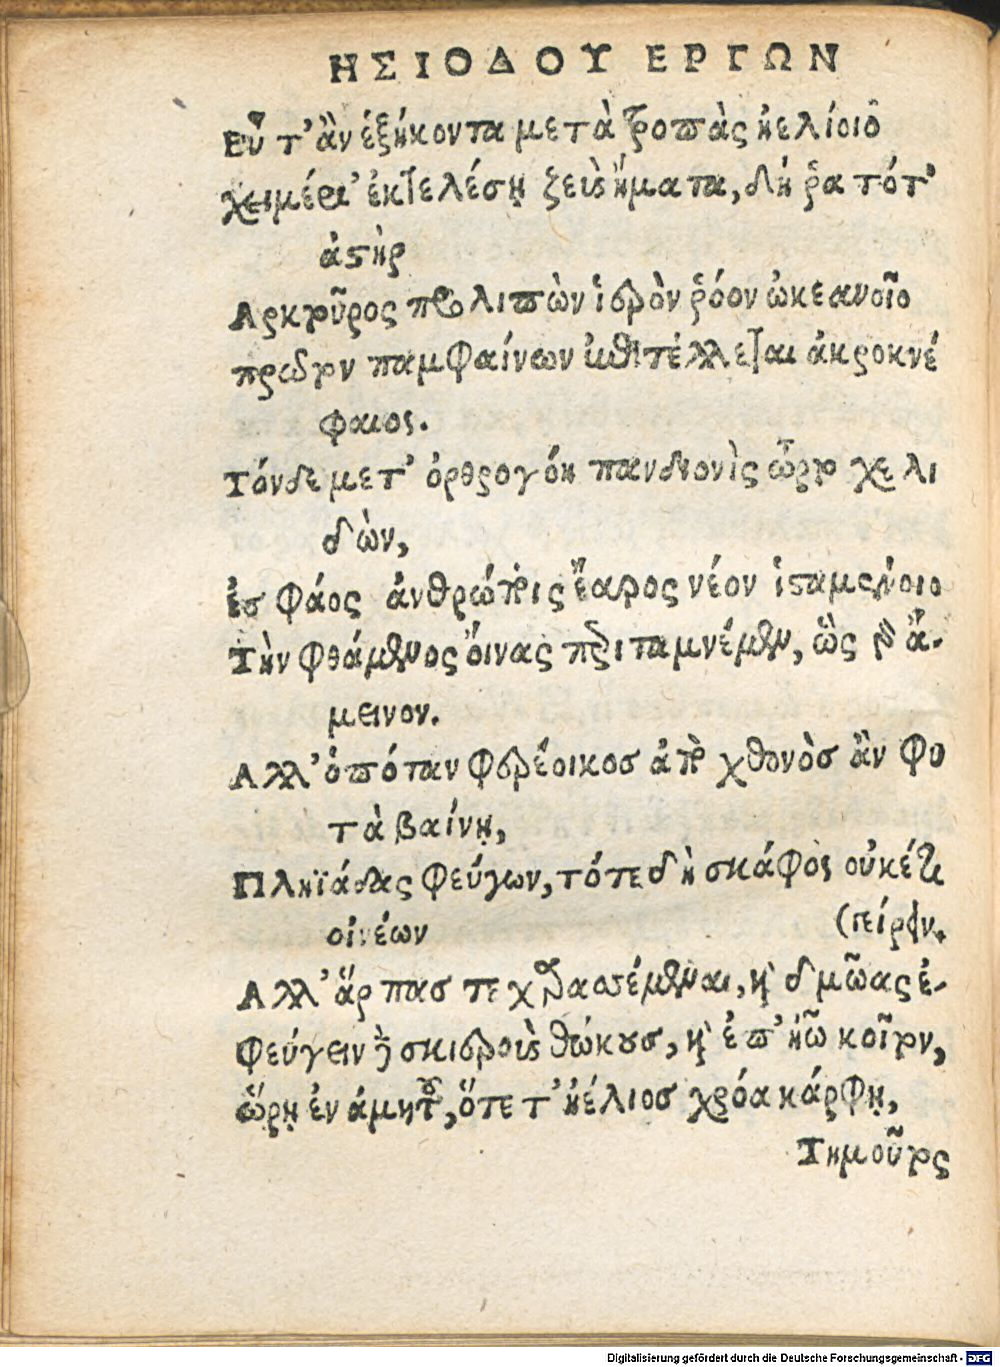 ΗΣΙΟΔΟΥ ΕΡΓΩΝ
Εὖ τ' ἂν ἑξήκοντα μετὰ τροπὰς ἠελίοιο
χειμέρι' ἐκτελέσῃ ζεὺς ἤματα, δή ῥα τότ'
ἀστὴρ
Αρκτοῦρος προλιπὼν ἱερὸν ῥόον ὠκεανοῖο
πρῶτον παμφαίνων ἐπιτέλλεται ἀκροκνέ
φαιος.
Τόνδε μετ' ὀρθρογόη πανδιονὶς ὦρτο χελι
δὼν,
ἐς φάος ἀνθρώποις ἔαρος νέον ἱσταμένοιο
Τὴν φθάμενος οἴνας περιταμνέμεν, ὣς γὰρ ἄ-
μεινον.
Αλλ' ὁπόταν φερέοικος ἀπὸ χθονὸς ἂν φυ
τὰ βαίνῃ,
Πληϊάδας φεύγων, τότε δὴ σκάφος οὐκέτι
οἰνέων (γείρειν.
Αλλ' ἅρπας τε χαρασσέμεναι, καὶ δμῶας ἐ-
Φεύγειν δὲ σκιεροὺς θώκους, καὶ ἐπ' ἠῶ κοῖτον,
ὥρῃ ἐν ἀμητοῦ, ὅτε τ' ἠέλιος χρόα κάρφῃ,
Τημοῦτος
Digitalisierung gefördert durch die Deutsche Forschungsgemeinschaft - DFG